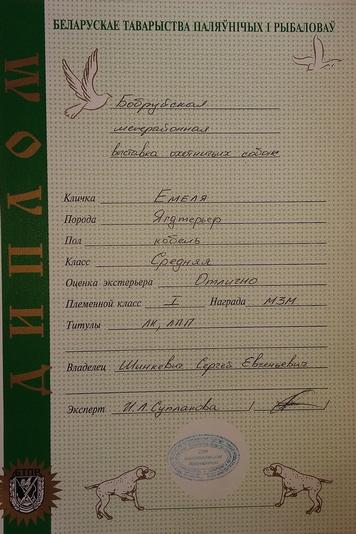 БЕЛАРУСКАЕ ТАВАРЫСТВА ПАЛЯЎНІЧЫХ І РЫБАЛОВАЎ
ДИПЛОМ
Бобруйская
межрайонная
выставка охотничьих собак
Кличка Емеля
Порода Ягдтерьер
Пол кобель
Класс Средняя
Оценка экстерьера Отлично
Племенной класс I Награда МЗМ
Титулы ЛК, ЛПП
Владелец Шинкевич Сергей Евгеньевич
Эксперт И.Л. Супланова / /
БТПР